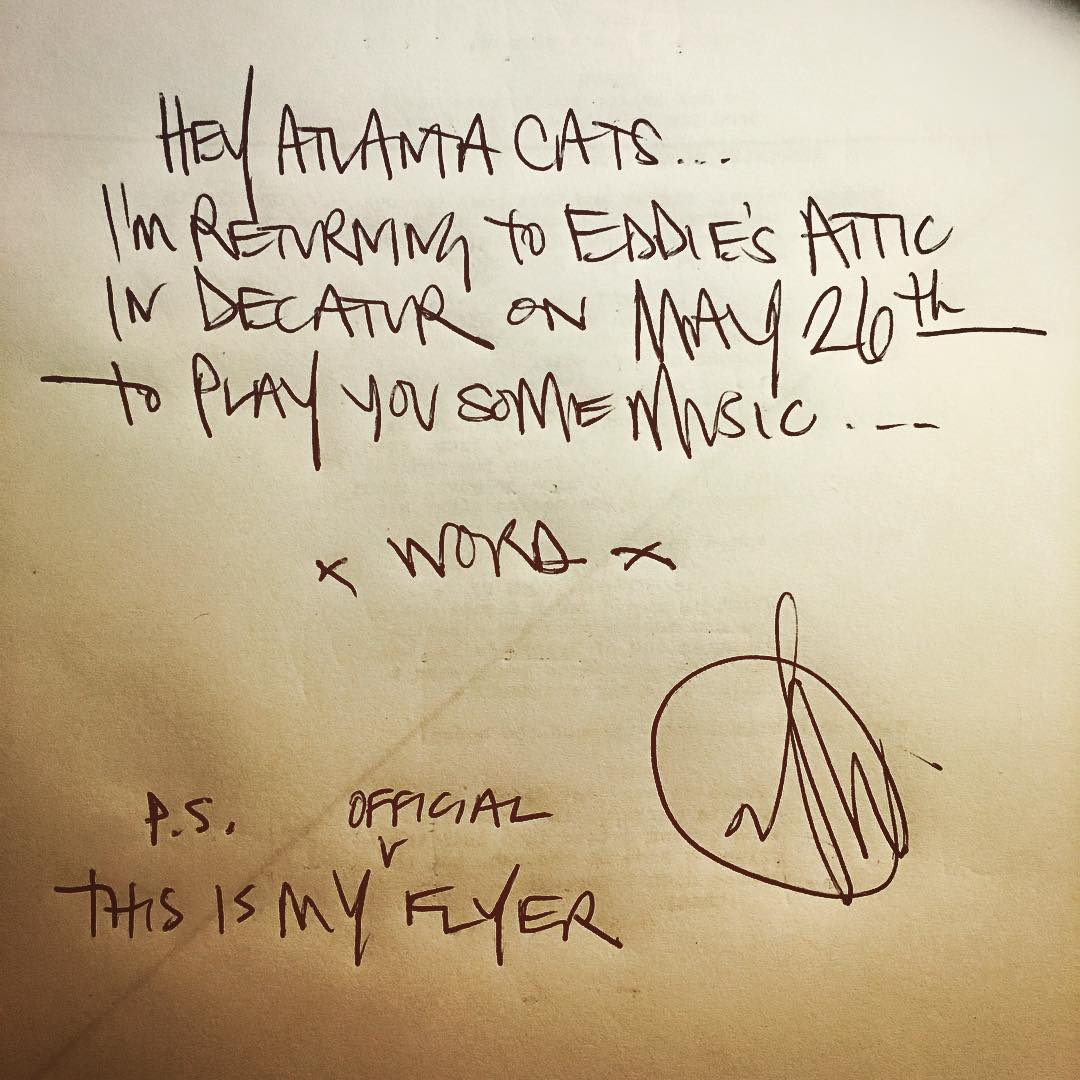 HEY ATLANTA CATS...
I'M RETURNING TO EDDIE'S ATTIC
IN DECATUR ON MAY 26th
to PLAY YOU SOME MUSIC . ---
x WORD x
P.S. OFFICIAL
THIS IS MY FLYER